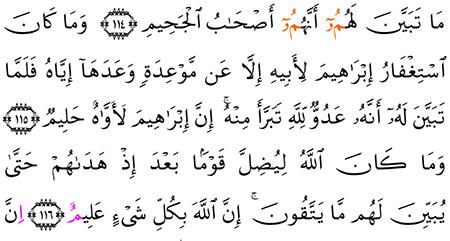 مَا تَبَيَّنَ لَهُمُۥٓ أَنَّهُمُۥٓ أَصْحَٰبُ ٱلْجَحِيمِ ١١٤ وَمَا كَانَ
ٱسْتِغْفَارُ إِبْرَٰهِيمَ لِأَبِيهِ إِلَّا عَن مَّوْعِدَةٖ وَعَدَهَا إِيَّاهُ فَلَمَّا
تَبَيَّنَ لَهُۥٓ أَنَّهُۥ عَدُوّٞ لِّلَّهِ تَبَرَّأَ مِنْهُۚ إِنَّ إِبْرَٰهِيمَ لَأَوَّٰهٌ حَلِيمٞ ١١٥
وَمَا كَانَ ٱللَّهُ لِيُضِلَّ قَوْمَۢا بَعْدَ إِذْ هَدَىٰهُمْ حَتَّىٰ
يُبَيِّنَ لَهُم مَّا يَتَّقُونَۚ إِنَّ ٱللَّهَ بِكُلِّ شَيْءٍ عَلِيمٌ ١١٦ اِنَّ